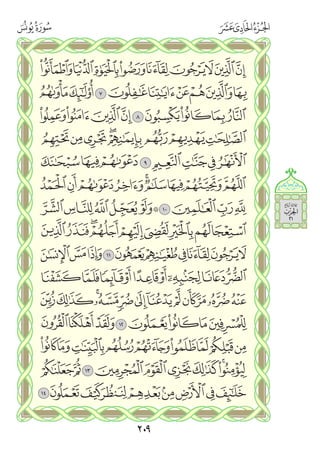 سُورَةُ يُونُسَ الجُزْءُ الحَادِي عَشَرَ
إِنَّ ٱلَّذِينَ لَا يَرْجُونَ لِقَآءَنَا وَرَضُوا۟ بِٱلْحَيَوٰةِ ٱلدُّنْيَا وَٱطْمَأَنُّوا۟
بِهَا وَٱلَّذِينَ هُمْ عَنْ ءَايَٰتِنَا غَٰفِلُونَ ٧ أُو۟لَٰٓئِكَ مَأْوَىٰهُمُ
ٱلنَّارُ بِمَا كَانُوا۟ يَكْسِبُونَ ٨ إِنَّ ٱلَّذِينَ ءَامَنُوا۟ وَعَمِلُوا۟
ٱلصَّٰلِحَٰتِ يَهْدِيهِمْ رَبُّهُم بِإِيمَٰنِهِمْ ۖ تَجْرِى مِن تَحْتِهِمُ
ٱلْأَنْهَٰرُ فِى جَنَّٰتِ ٱلنَّعِيمِ ٩ دَعْوَىٰهُمْ فِيهَا سُبْحَٰنَكَ
ٱللَّهُمَّ وَتَحِيَّتُهُمْ فِيهَا سَلَٰمٌ ۚ وَءَاخِرُ دَعْوَىٰهُمْ أَنِ ٱلْحَمْدُ
لِلَّهِ رَبِّ ٱلْعَٰلَمِينَ ١٠ ۞ وَلَوْ يُعَجِّلُ ٱللَّهُ لِلنَّاسِ ٱلشَّرَّ
ٱسْتِعْجَالَهُم بِٱلْخَيْرِ لَقُضِىَ إِلَيْهِمْ أَجَلُهُمْ ۖ فَنَذَرُ ٱلَّذِينَ
لَا يَرْجُونَ لِقَآءَنَا فِى طُغْيَٰنِهِمْ يَعْمَهُونَ ١١ وَإِذَا مَسَّ ٱلْإِنسَٰنَ
ٱلضُّرُّ دَعَانَا لِجَنۢبِهِۦٓ أَوْ قَاعِدًا أَوْ قَآئِمًا فَلَمَّا كَشَفْنَا
عَنْهُ ضُرَّهُۥ مَرَّ كَأَن لَّمْ يَدْعُنَآ إِلَىٰ ضُرٍّ مَّسَّهُۥ ۚ كَذَٰلِكَ زُيِّنَ
لِلْمُسْرِفِينَ مَا كَانُوا۟ يَعْمَلُونَ ١٢ وَلَقَدْ أَهْلَكْنَا ٱلْقُرُونَ
مِن قَبْلِكُمْ لَمَّا ظَلَمُوا۟ ۙ وَجَآءَتْهُمْ رُسُلُهُم بِٱلْبَيِّنَٰتِ وَمَا كَانُوا۟
لِيُؤْمِنُوا۟ ۚ كَذَٰلِكَ نَجْزِى ٱلْقَوْمَ ٱلْمُجْرِمِينَ ١٣ ثُمَّ جَعَلْنَٰكُمْ
خَلَٰٓئِفَ فِى ٱلْأَرْضِ مِنۢ بَعْدِهِمْ لِنَنظُرَ كَيْفَ تَعْمَلُونَ ١٤
الحزب
٢١
٢٠٩